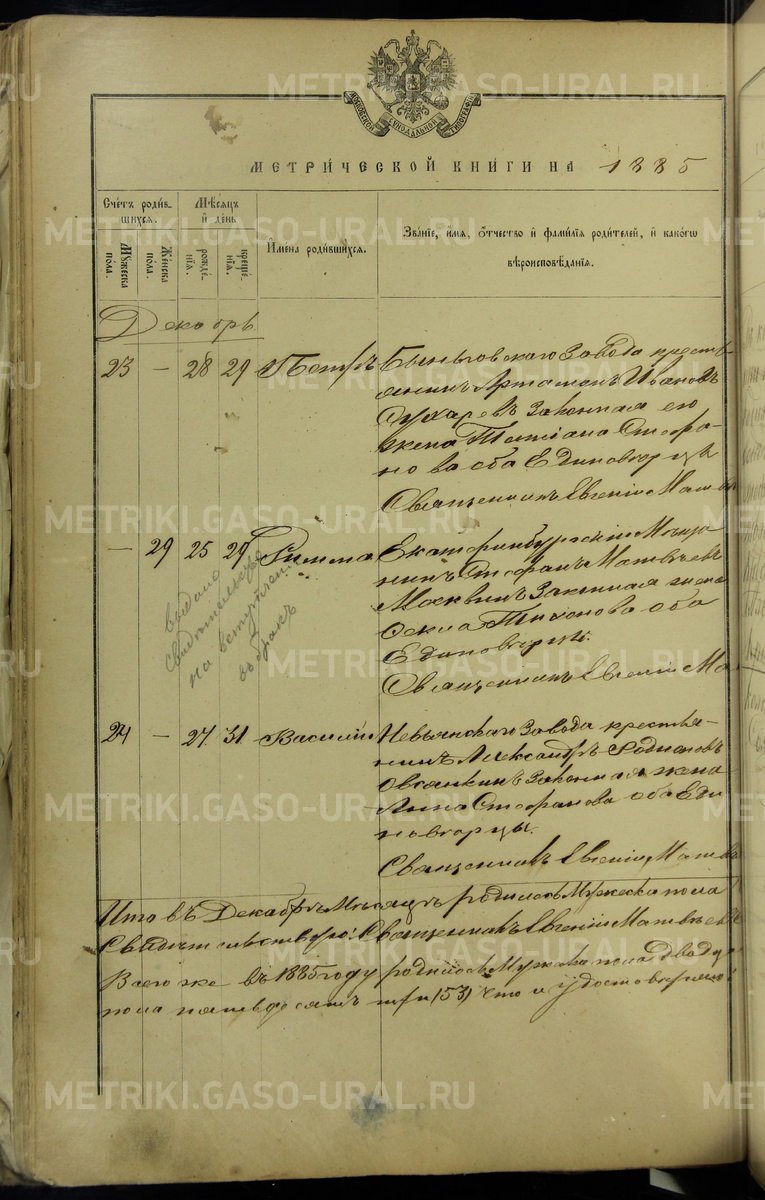 МОСКОВСКОЙ СѴНОДАЛЬНОЙ ТИПОГРАФІИ
МЕТРИ́ЧЕСКОЙ КНИГИ НА 1885
Сче́тъ роди́в-
шихся.
Мꙋ́жеска
по́ла.
Же́нска
по́ла.
Мѣ́сяцъ
и҆ де́нь
рожде́-
нїя.
креще́-
нїя.
И҆мена̀ роди́вшихся.
Зва́нїе, и҆́мя, ѻ҆́тчество и҆ фами́лїя роди́телей, и҆ како́гѡ
вѣроисповѣ́данїя.
Декабрь
23 — 28 29 Петръ
Быньговскаго Завода кресть-
янинъ Артамонъ Ивановъ
Сухаревъ Законная его
жена Татіана Стефа-
нова оба Единоверцы
Священникъ Евгеній Матвѣ
— 29 25 29 Римма
Екатеринбургскій Мѣща-
нинъ Стефанъ Матвѣевъ
Москвинъ Законная жена
Тихонова оба
Единоверцы.
Священникъ Евгеній Ма
выдано
свидетельство
на вступлен
въ бракъ
24 — 27 31 Василій
Невьянскаго Завода крестья-
нинъ Александръ Родіоновъ
Овсянкинъ Законная жена
Анна Стефанова оба Еди
новерцы.
Священникъ Евгеній Матвѣ
Итого въ Декабрѣ Мѣсяцѣ родилось Мужеска пола
Свидетельствую: Священникъ Евгеній Матвѣевъ
Всего же въ 1885 году родилось Мужска пола двадца
пола пятьдесятъ три (53) Что и удостоверяю
METRIKI.GASO-URAL.RU